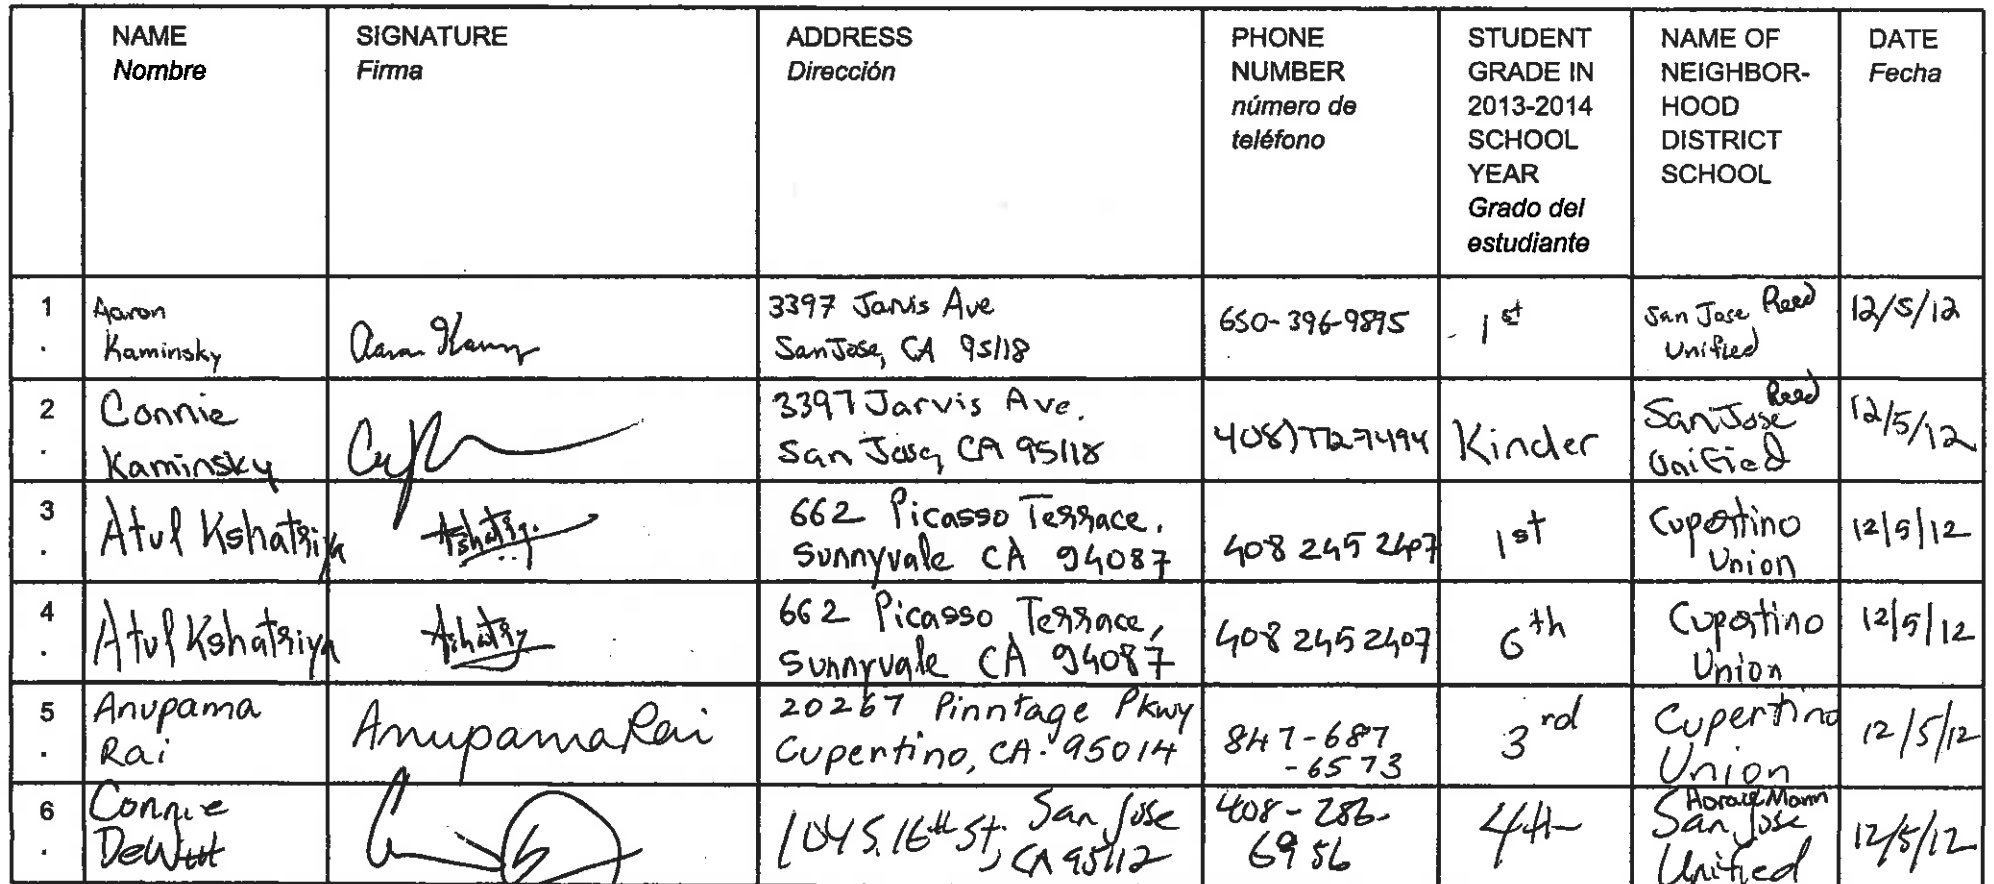 NAME
Nombre
SIGNATURE
Firma
ADDRESS
Dirección
PHONE
NUMBER
número de
teléfono
STUDENT
GRADE IN
2013-2014
SCHOOL
YEAR
Grado del
estudiante
NAME OF
NEIGHBOR-
HOOD
DISTRICT
SCHOOL
DATE
Fecha
1
.
Aaron
Kaminsky
3397 Jarvis Ave
San Jose, CA 95118
650-396-9895
1st
San Jose Reed
Unified
12/5/12
2
.
Connie
Kaminsky
3397 Jarvis Ave.
San Jose, CA 95118
408)772-7494
Kinder
Reed
San Jose
Unified
12/5/12
3
.
Atul Kshatriya
662 Picasso Terrace,
Sunnyvale CA 94087
408 245 2407
1st
Cupertino
Union
12/5/12
4
.
Atul Kshatriya
662 Picasso Terrace,
Sunnyvale CA 94087
408 245 2407
6th
Cupertino
Union
12/5/12
5
.
Anupama
Rai
Anupama Rai
20267 Pinntage Pkwy
Cupertino, CA. 95014
847-687
-6573
3rd
Cupertino
Union
12/5/12
6
.
Connie
DeWitt
104 S. 16th St, San Jose
CA 95112
408-286-
6956
4th
Horace Mann
San Jose
Unified
12/5/12